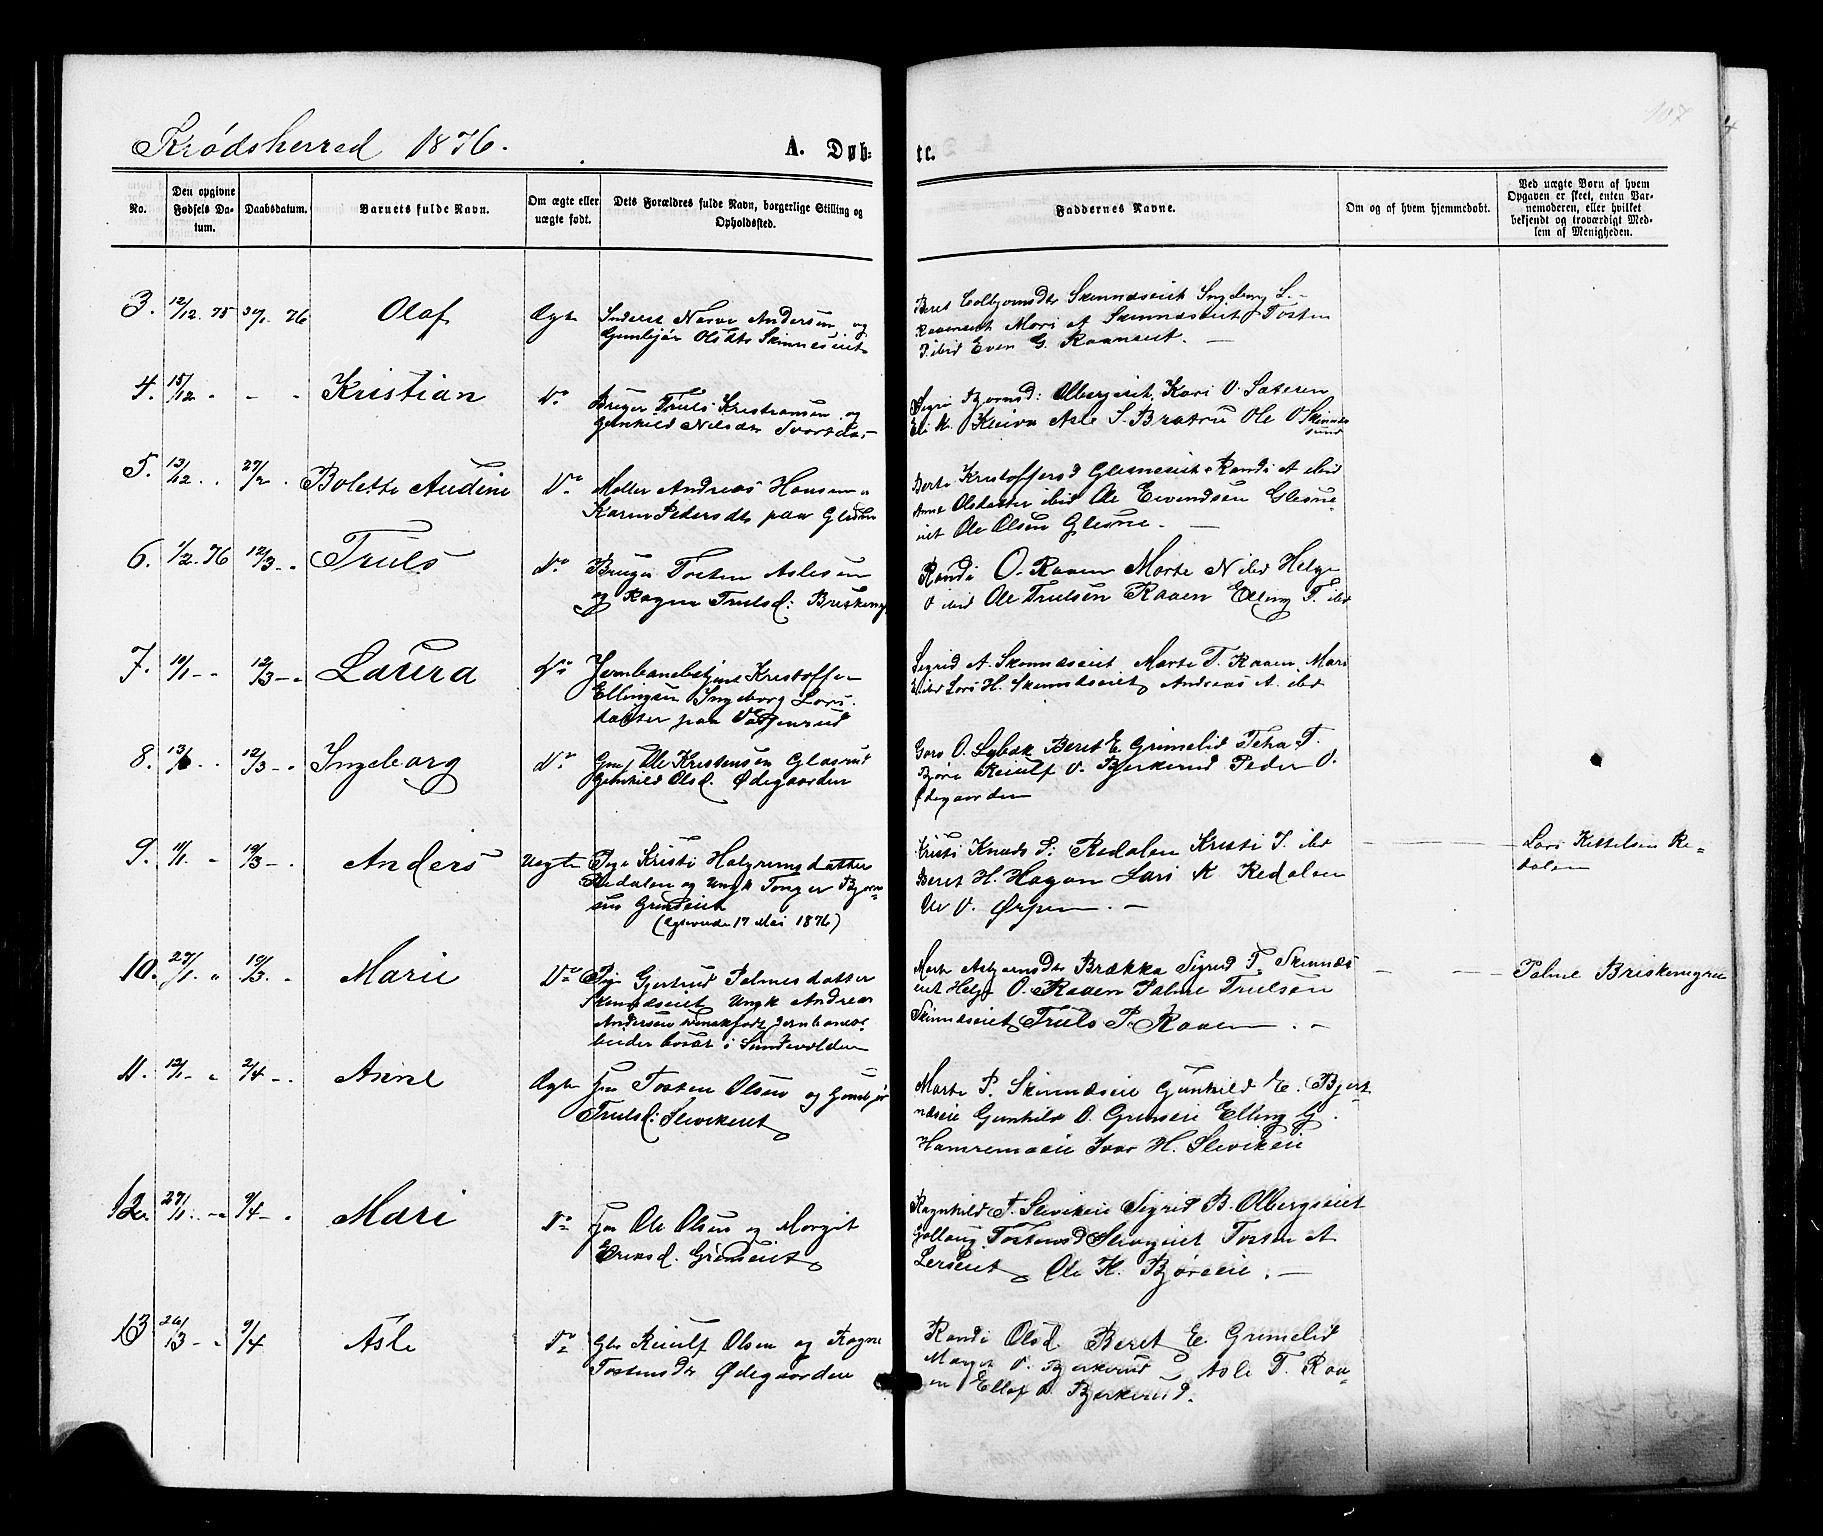 Krødsherred 1876.
A. Døb-
te.
No.
Den opgivne Fødsels Datum.
Daabsdatum.
Barnets fulde Navn.
Om ægte eller uægte født.
Dets Forældres fulde Navn, borgerlige Stilling og Opholdssted.
Faddernes Navne.
Om og af hvem hjemmedøbt.
Ved uægte Børn af hvem
Opgaven er skeet, enten Bar-
nemoderen, eller hvilket
bekjendt og troværdigt Med-
lem af Menigheden.
3. 12/12 75 30/1 76 Olaf Ægte
Inderst Narve Andersen og
Gunbjør Olsdtr Skinneseiet
Beret Colbjornsdtr Skinnæseiet Ingeborg L.
Raaenseiet Mari A Skinnæseiet Tosten
T. ibid Even G. Raaneiet. —
4. 15/12 „ - - „ Kristian Do
Bruger Truls Kristiansen og
Gunhild Nilsdtr
Sigri Bjornsd: Olbergseiet, Kari O. Sateren
Eli K. Kleiva Asle S. Bratru Ole O Skinnes
5. 13/12 „ 27/2 „ Bolette Audine Do
Møller Andreas Hansen o
Karen Pedersdtr paa Glesne
Berte Kristoffersd Glesneeiet Randi A ibid
Anne Olsdatter ibid Ole Eivendsen Glesne-
eiet Ole Olsen Glesne. —
6. 1/2 76 12/3 - „ Truls Do
Bruger Tosten Aslesen
og Ragne Trulsd: Briskeng
Randi O. Raaen Marte N ibid Helge
O ibid Ole Trulsen Raaen Elling T. ibid
7. 10/1 - „ 12/3 - „ Laura Do
Jernbanebetjent Kristoffer
Ellingsen Ingeborg Lars-
datter paa
Sigrid A. Skinnæseiet. Marte T. Raaen. Mari
E ibid Lars H. Skinnæseiet Andreas A. ibid
8. 12/3 - „ Ingeborg Do
Gm/ Ole Kristensen Glasrud
Gunhild Olsd. Ødegaarden
Goro O. Lybæk Beret E. Grimelid
Reiulf O. Bjerkerud Peder O.
Ødegaarden
9. 11/1 „ 19/3 - „ Anders Uægte
Pige Kristi Halgrimsdatter
Redalen og Ungk
Grinseiet
(Ægteviede 17 Mai 1876)
Kristi Knuds D: Redalen Kristi T. ibid
Beret H. Hagan Lars K. Redalen
O. Ørpen. —
Lars Kittelsen Re-
dalen
10. 27/1 „ 19/3 „ Marie Do
Pige Gjertrud Palmesdatter
Skinnæseiet Ungk Andreas
Andersen svenskfødt Jernbanear-
beider bosat i Sundvolden
Marte Asbjørnsdtr Brækka Sigrid T. Skinnæs-
eiet Helge O. Raaen Palme Trulsen
Skinnæseiet Truls P. Raaen. —
Palme Briskemyren
11. 12/1 - „ 2/4 - „ Anne Ægte
Tosten Olsen og Gunbjør
Trulsd: Slevikeiet
Marte P. Skinnæseie Gunhild E. Bjert-
næseie Gunhild O. Grinseie Elling G.
Hamremoeie Ivar H. Slevikeie
12. 27/1 - „ 9/4 - „ Mari Do
Ole Olsen og Margit
Eriksd. Grinseiet
Ragnhild T. Slevikeie Sigrid B. Olbergseiet
Gollaug Tostensd Tosten A
Lerseiet Ole K. Bjøreeie. —
13 26/13 - „ 9/4 Asle Do
Gbr Reiulf Olsen og Ragne
Tostensdtr Ødegaarden
Randi Olsd Beret E Grimelid
Marget O. Bjerkerud Asle T. Raa-
en Ellef O. Bjerkerud.